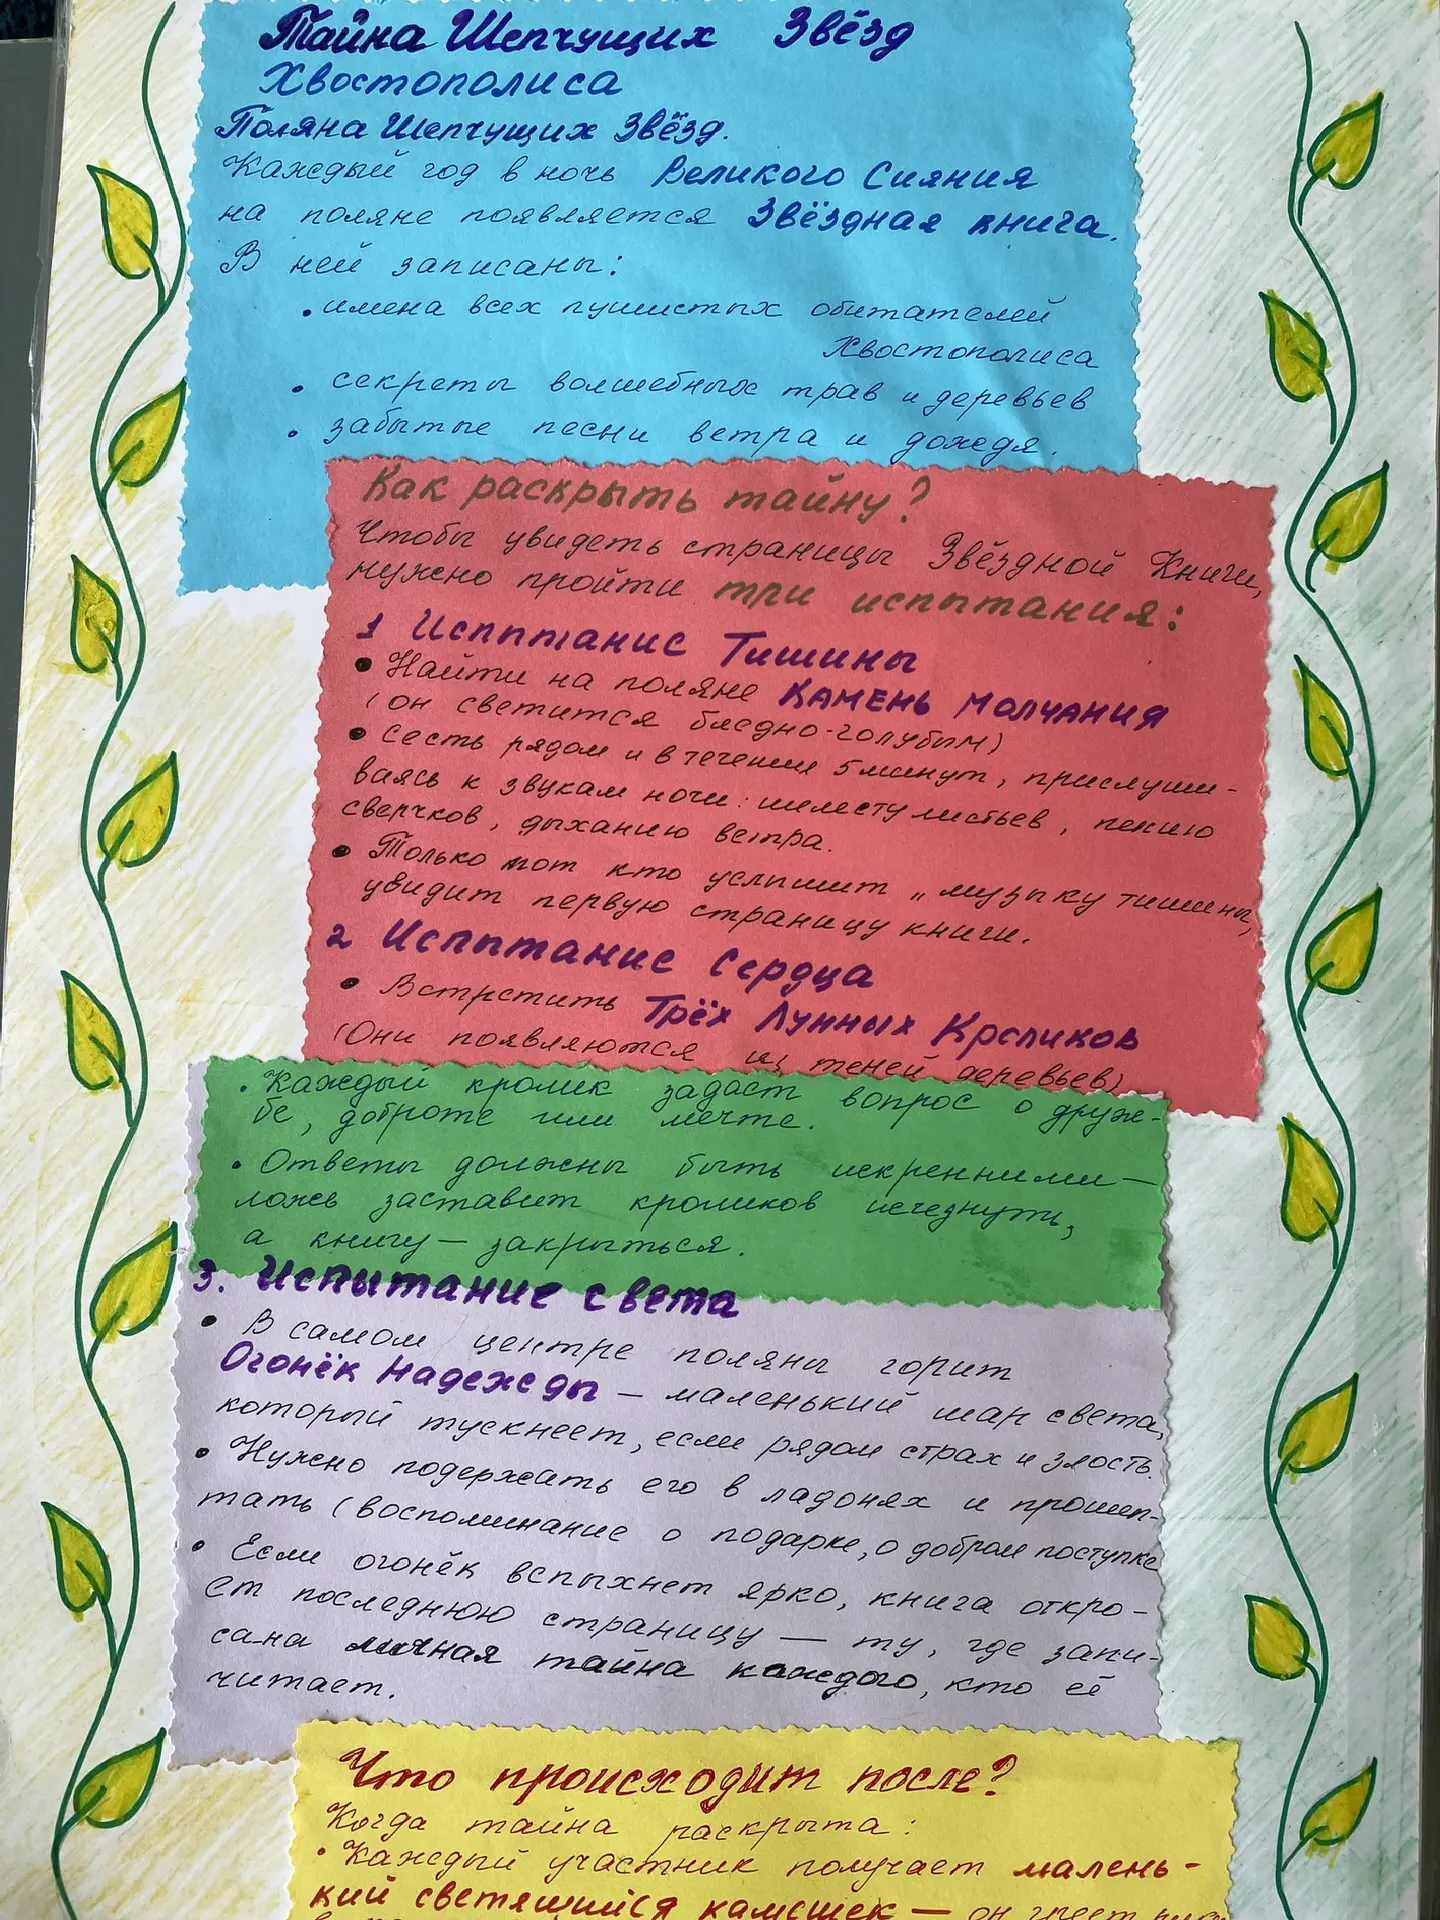 Тайна Шепчущих Звёзд
Хвостополиса
Поляна Шепчущих Звёзд.
Каждый год в ночь Великого Сияния
на поляне появляется Звёздная книга.
В ней записаны:
• имена всех пушистых обитателей
Хвостополиса
• секреты волшебных трав и деревьев
• забытые песни ветра и дождя.
Как раскрыть тайну?
Чтобы увидеть страницы Звёздной Книги,
нужно пройти три испытания:
1 Испытание Тишины
• Найти на поляне Камень Молчания
(он светится бледно-голубым)
• Сесть рядом и в течении 5 минут, прислуши-
ваясь к звукам ночи: шелесту листьев, пению
сверчков, дыханию ветра.
• Только тот кто услышит „музыку тишины,
увидит первую страницу книги.
2 Испытание Сердца
• Встретить Трёх Лунных Кроликов
(Они появляются из теней деревьев)
• Каждый кролик задаст вопрос о друж-
бе, доброте или мечте.
• Ответы должны быть искренними —
ложь заставит кроликов исчезнуть,
а книгу — закрыться.
3. Испытание света
• В самом центре поляны горит
Огонёк Надежды — маленький шар света,
который тускнеет, если рядом страх и злость.
• Нужно подержать его в ладонях и прошеп-
тать (воспоминание о подарке, о добром поступке
• Если огонёк вспыхнет ярко, книга откро-
ет последнюю страницу — ту, где запи-
сана личная тайна каждого, кто её
читает.
Что происходит после?
Когда тайна раскрыта:
• Каждый участник получает малень-
кий светящийся камешек — он